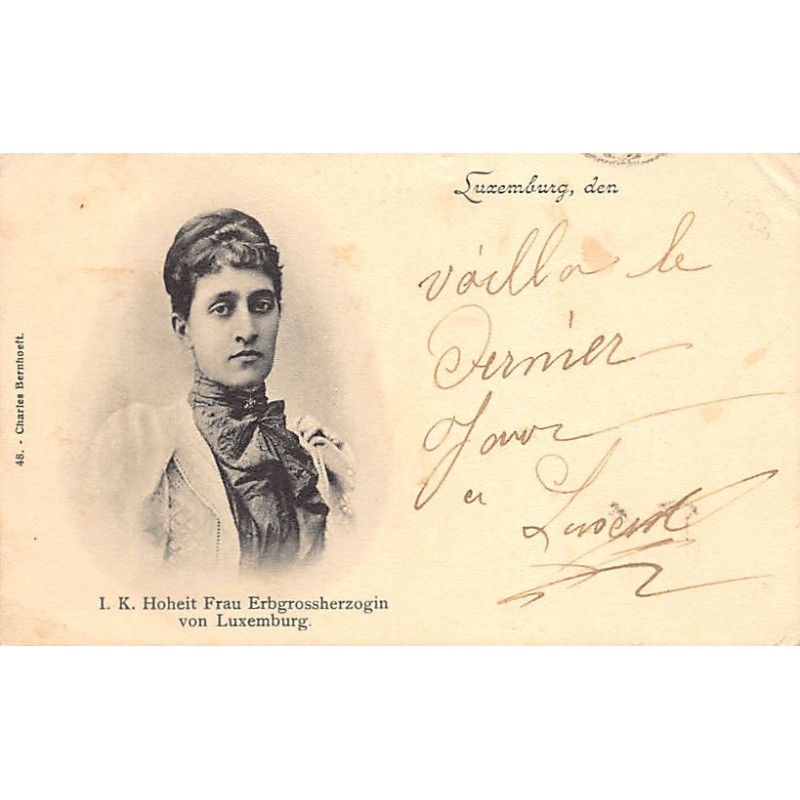 Luxemburg, den
voilla le
Dernier
Jour
a
48. - Charles Bernhoeft.
I. K. Hoheit Frau Erbgrossherzogin
von Luxemburg.